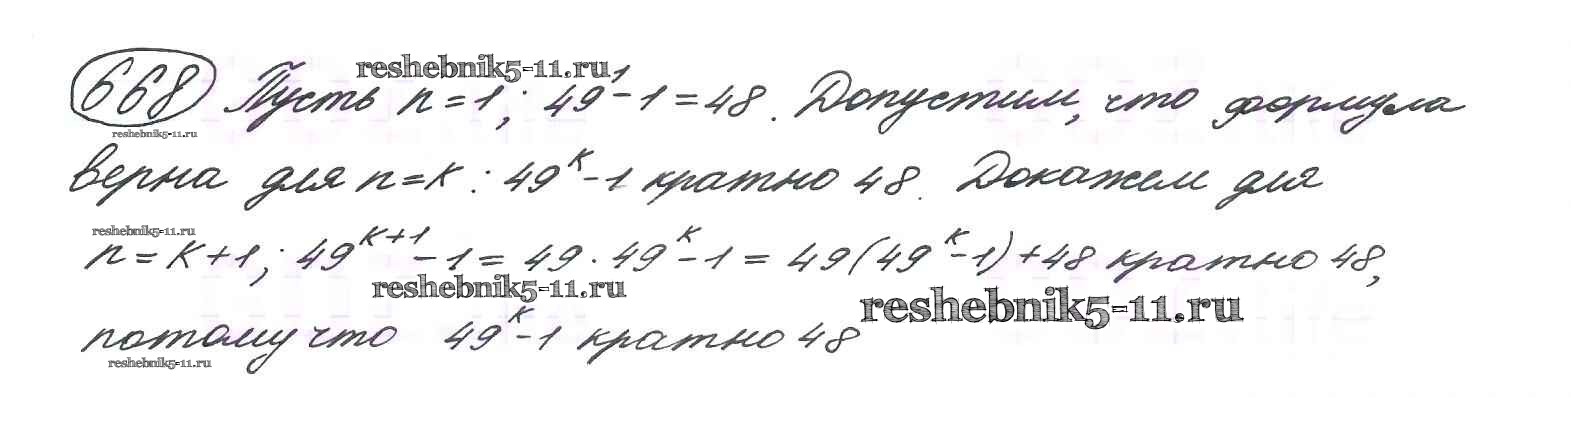 reshebnik5-11.ru
668 Пусть n=1; 49¹-1=48. Допустим, что формула
reshebnik5-11.ru
верна для n=k: 49ᵏ-1 кратно 48. Докажем для
reshebnik5-11.ru
n=k+1; 49ᵏ⁺¹-1=49·49ᵏ-1=49(49ᵏ-1)+48 кратно 48,
reshebnik5-11.ru
reshebnik5-11.ru
потому что 49ᵏ-1 кратно 48
reshebnik5-11.ru